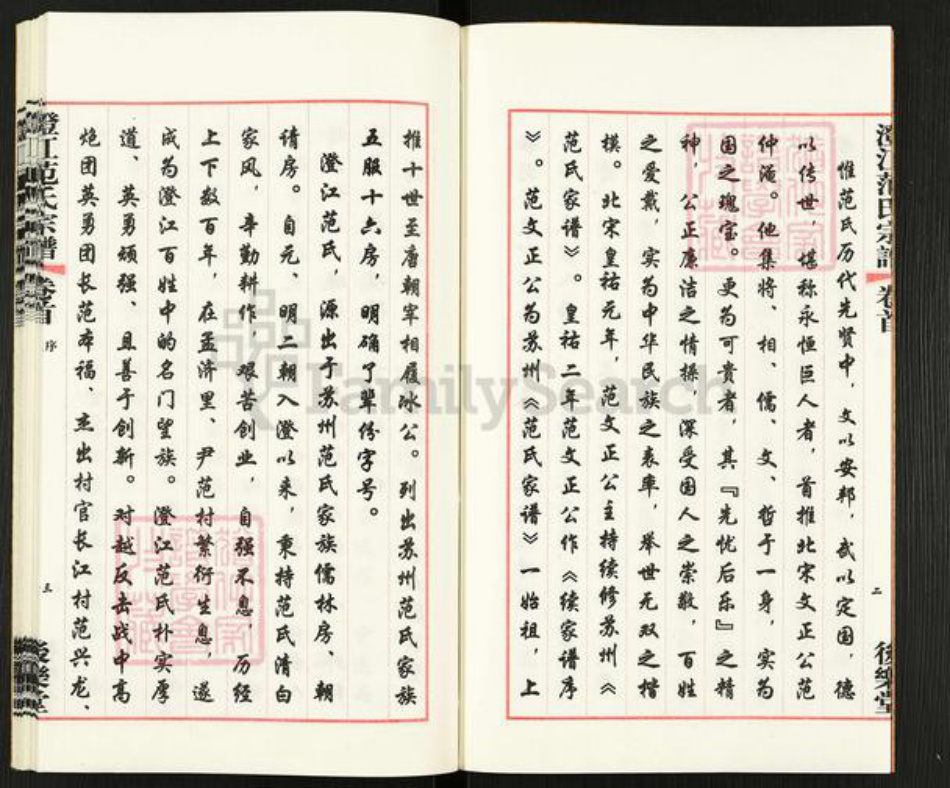 澄江范氏宗譜
卷首
二
後樂堂
惟范氏历代先贤中，文以安邦，武以定国，德
以传世，堪称永恒巨人者，首推北宋文正公范
仲淹。他集将、相、儒、文、哲于一身，实为
国之瑰宝。更为可贵者，其『先忧后乐』之精
神，公正廉洁之情操，深受国人之崇敬，百姓
之爱戴，实为中华民族之表率，举世无双之楷
模。北宋皇祐元年，范文正公主持续修苏州《
范氏家谱》。皇祐二年范文正公作《续家谱序
》。范文正公为苏州《范氏家谱》一始祖，上
推十世至唐朝宰相履冰公。列出苏州范氏家族
五服十六房，明确了辈份字号。
澄江范氏，源出于苏州范氏家族儒林房、朝
请房。自元、明二朝入澄以来，秉持范氏清白
家风，辛勤耕作，艰苦创业，自强不息，历经
上下数百年，在孟济里、尹范村繁衍生息，遂
成为澄江百姓中的名门望族。澄江范氏朴实厚
道、英勇顽强、且善于创新。对越反击战中高
炮团英勇团长范本福、杰出村官长江村范兴龙、
澄江范氏宗譜
卷首
序
三
後樂堂
FamilySearch